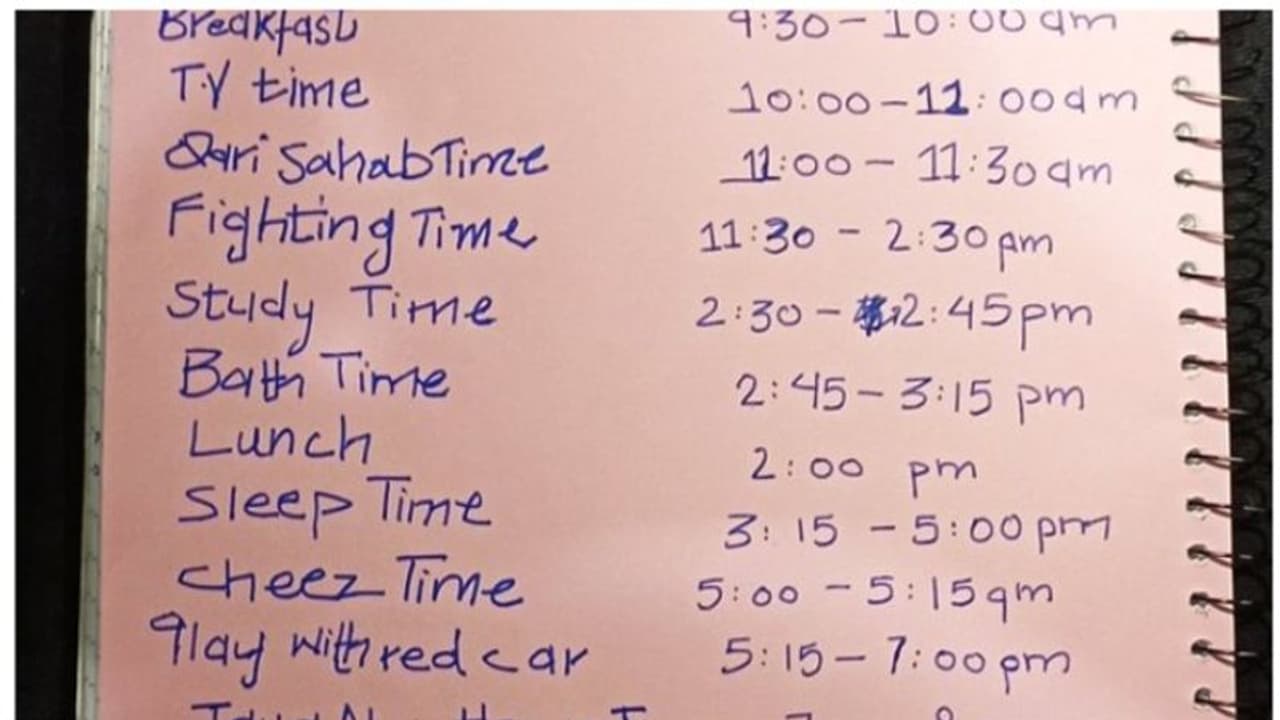 Breakfast 9:30 - 10:00 am
T.V time 10:00 - 11:00 am
Qari Sahab Time 11:00 - 11:30 am
Fighting Time 11:30 - 2:30 pm
Study Time 2:30 - 2:45 pm
Bath Time 2:45 - 3:15 pm
Lunch 2:00 pm
Sleep Time 3:15 - 5:00 pm
Cheez Time 5:00 - 5:15 qm
Play with red car 5:15 - 7:00 pm